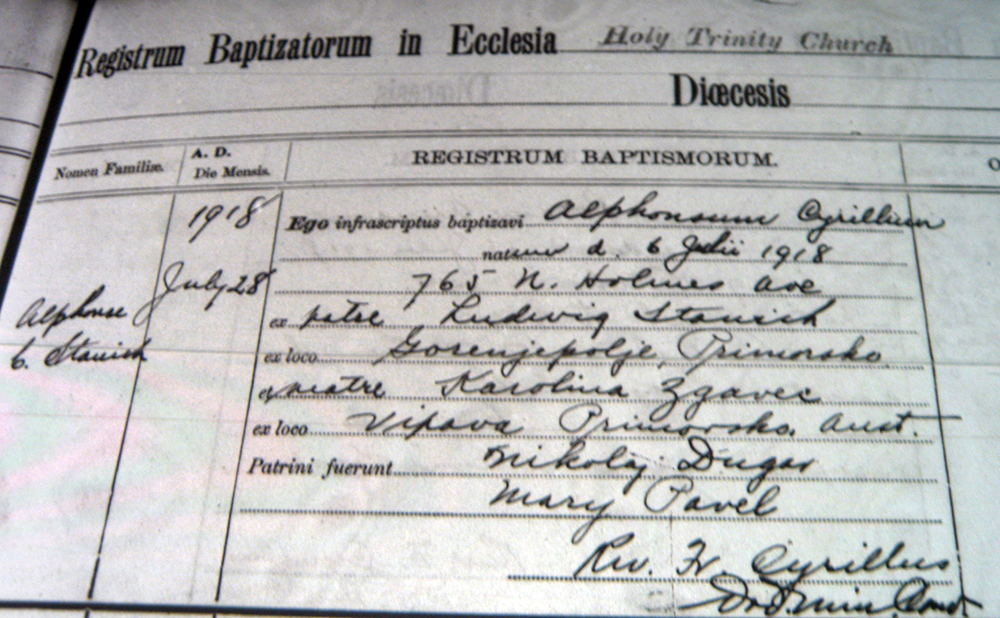 Registrum Baptizatorum in Ecclesia Holy Trinity Church
Diœcesis
Nomen Familiæ.
A. D.
Die Mensis.
REGISTRUM BAPTISMORUM.
1918
Ego infrascriptus baptizavi Alphonsum Cyrillum
natum d. 6 Julii 1918
July 28
765 N. Holmes Ave
Alphonse
C. Stanich
ex patre Ludwig Stanich
ex loco Gorenjepolje, Primorsko
ex matre Karolina Zgavec
ex loco Vipava Primorsko, Aust.
Patrini fuerunt Nikolaj Dugar
Mary Pavel
Rev. Fr. Cyrillus